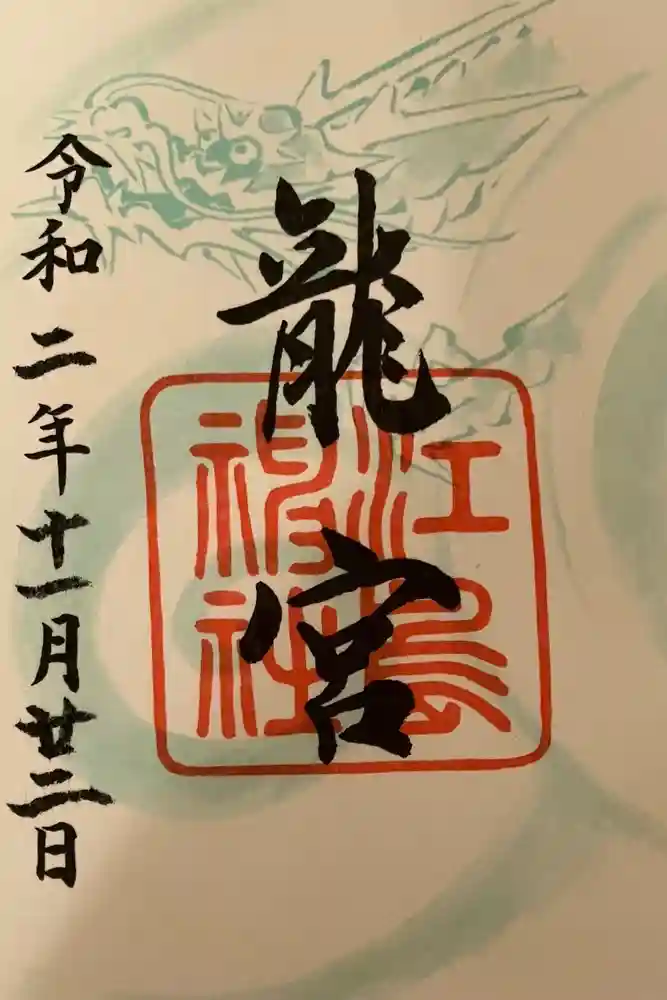 龍宮
江島神社
令和二年十一月廿二日